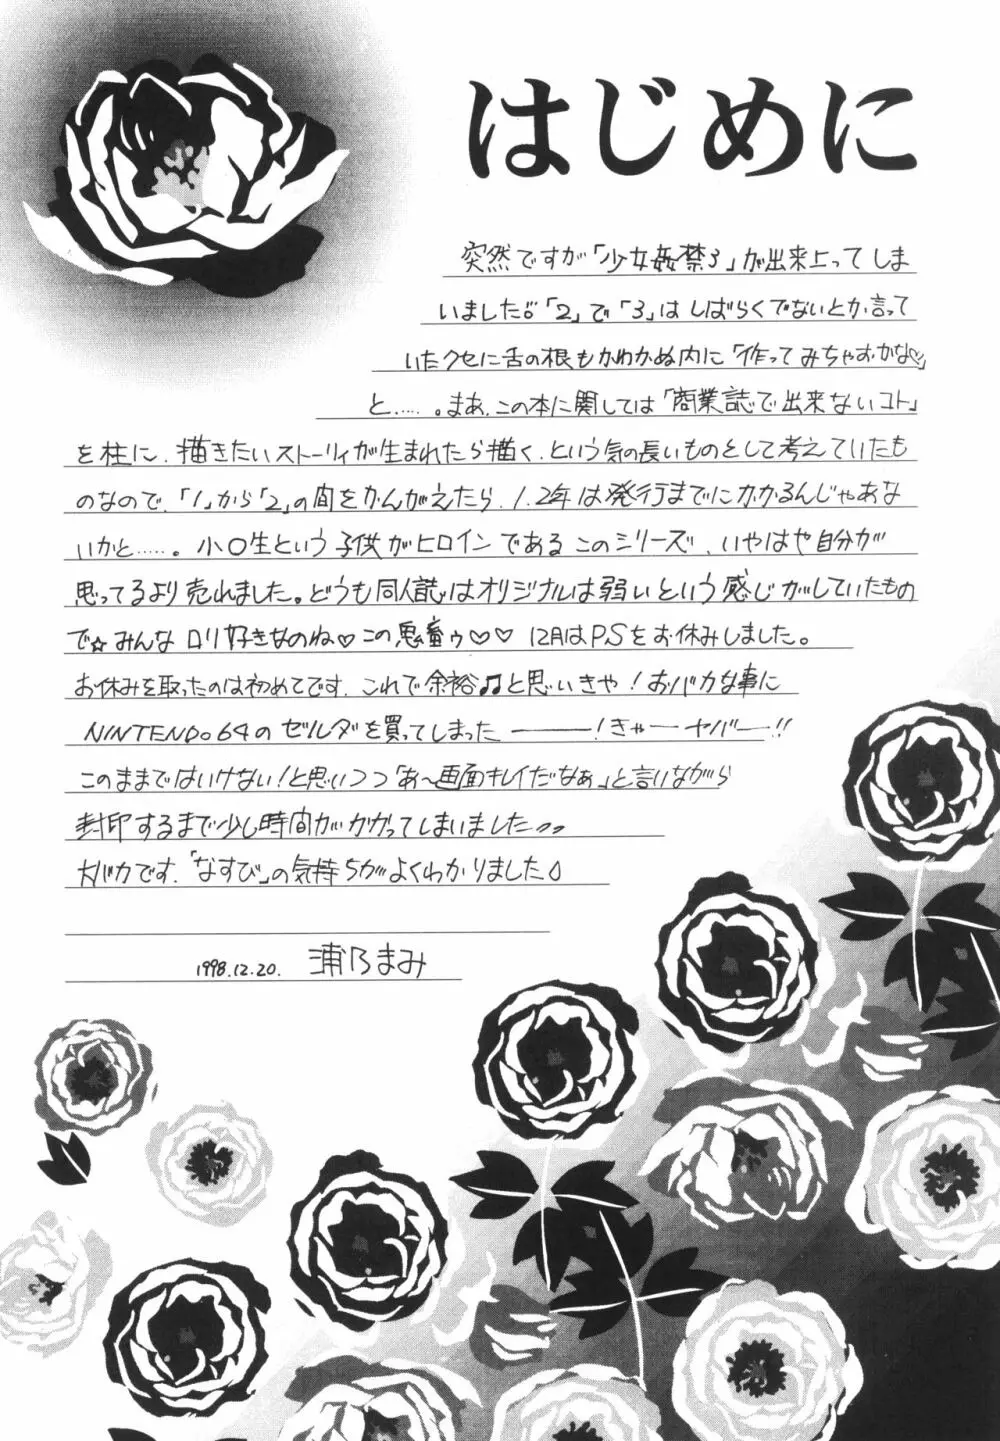 はじめに
突然ですが「少女姦禁3」が出来上ってしま
いました。「2」で「3」はしばらくでないとか言って
いたクセに舌の根もかわかぬ内に「作ってみちゃおかな♡」
と……。まあ、この本に関しては「商業誌で出来ないコト」
を柱に、描きたいストーリィが生まれたら描く、という気の長いものとして考えていたも
のなので、「1」から「2」の間をかんがえたら、1.2年は発行までにかかるんじゃあな
いかと……。小○生という子供がヒロインであるこのシリーズ、いやはや自分が
思ってるより売れました。どうも同人誌はオリジナルは弱いという感じがしていたもの
で☆みんなロリ好きなのね♡この悪童ゥ♡♡ 12月はP.Sをお休みしました。
お休みを取ったのは初めてです、これで余裕♫と思いきや!おバカな事に
NINTENDO64のゼルダを買ってしまった――――!きゃーヤバー!!
このままではいけない!と思いつつ「あ〜画面キレイだなぁ」と言いながら
封印するまで少し時間がかかってしまいました
大バカです、「なすび」の気持ちがよくわかりました
1998.12.20. 浦乃まみ